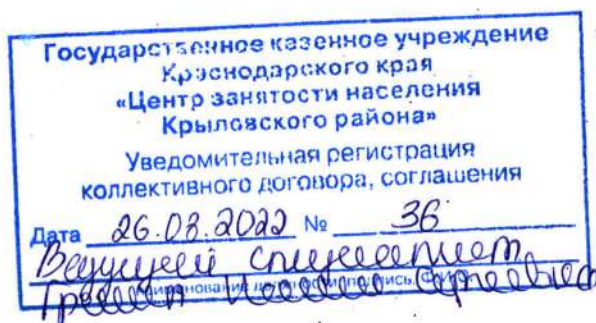 Государственное казенное учреждение
Краснодарского края
«Центр занятости населения
Крыловского района»
Уведомительная регистрация
коллективного договора, соглашения
Дата 26.08.2022 № 36
Ведущий специалист